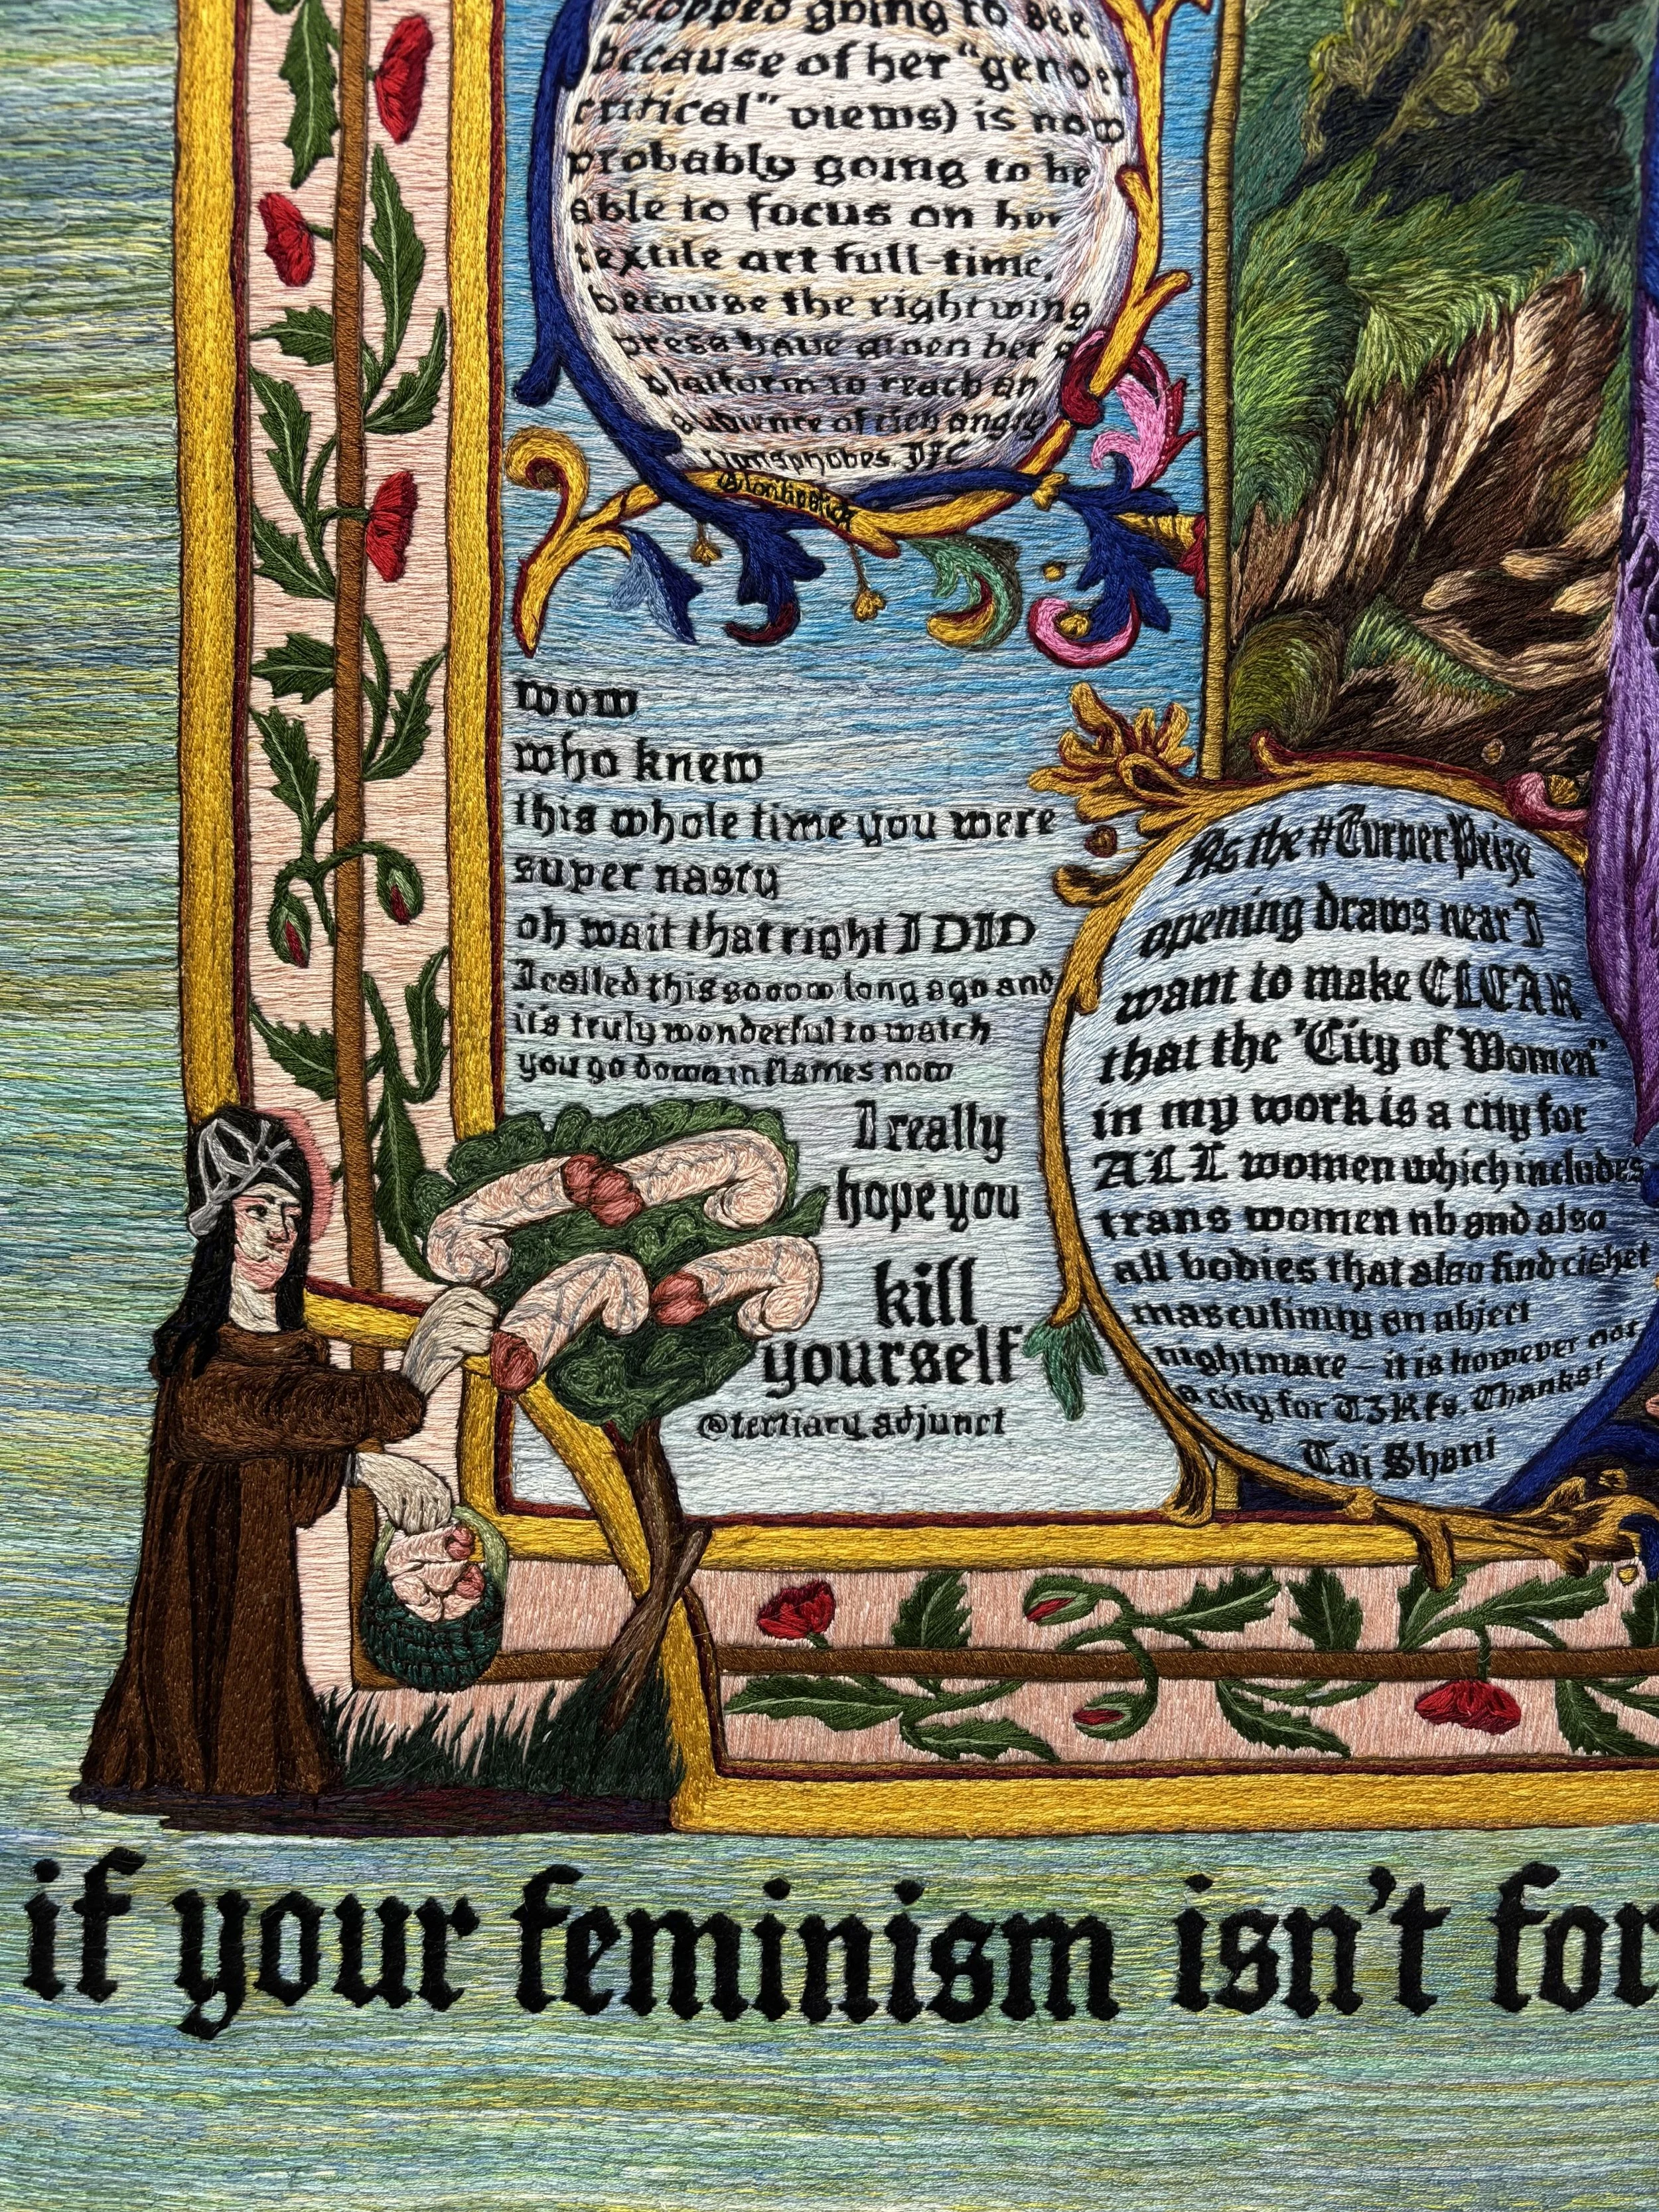 stopped going to see
because of her "gender
critical" views) is now
probably going to be
able to focus on her
textile art full-time,
because the right wing
press have given her a
platform to reach an
audience of rich angry
transphobes. JFC
wow
who knew
this whole time you were
super nasty
oh wait that right I DID
I called this sooow long ago and
it's truly wonderful to watch
you go down in flames now
I really
hope you
kill
yourself
@tertiary_adjunct
As the #TurnerPrize
opening draws near I
want to make CLEAR
that the "City of Women"
in my work is a city for
ALL women which includes
trans women nb and also
all bodies that also find cishet
masculinity an abject
nightmare - it is however not
a city for T3Rfs. Thanks!
Tai Shani
if your feminism isn't for